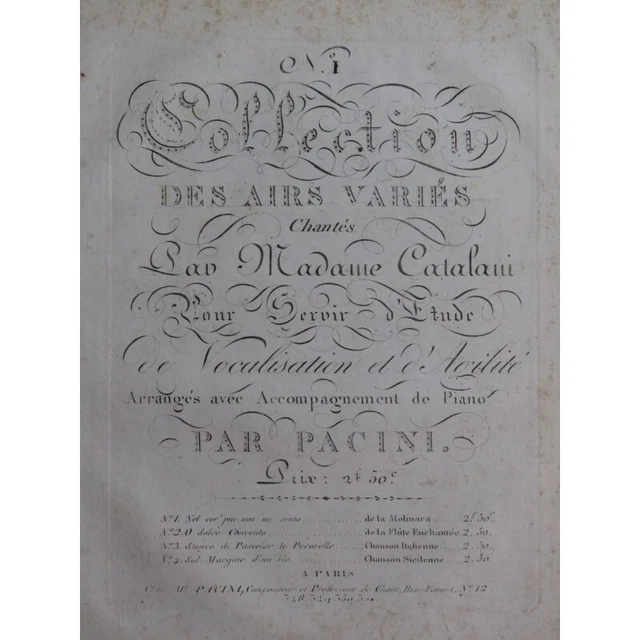 N.º 1
Collection
DES AIRS VARIÉS
Chantés
Par Madame Catalani
Pour Servir d'Etude
de Vocalisation et d'Agilité
Arrangés avec Accompagnement de Piano
PAR PACINI.
Prix: 2f 50c
Nº 1. Nel cor' più non mi sento ......... de la Molinara .. 2f 50c
Nº 2. O dolce Concento ......... de la Flûte Enchantée 2. 50.
Nº 3. Stanco di Pascolar le Pecorelle ...... Chanson Italienne .. 2. 50.
Nº 4. Sul Margine d'un rio ......... Chanson Sicilenne .. 2. 50.
A PARIS
Chez Mr PACINI, Compositeur et Professeur de Chant, Rue Favart, Nº 12